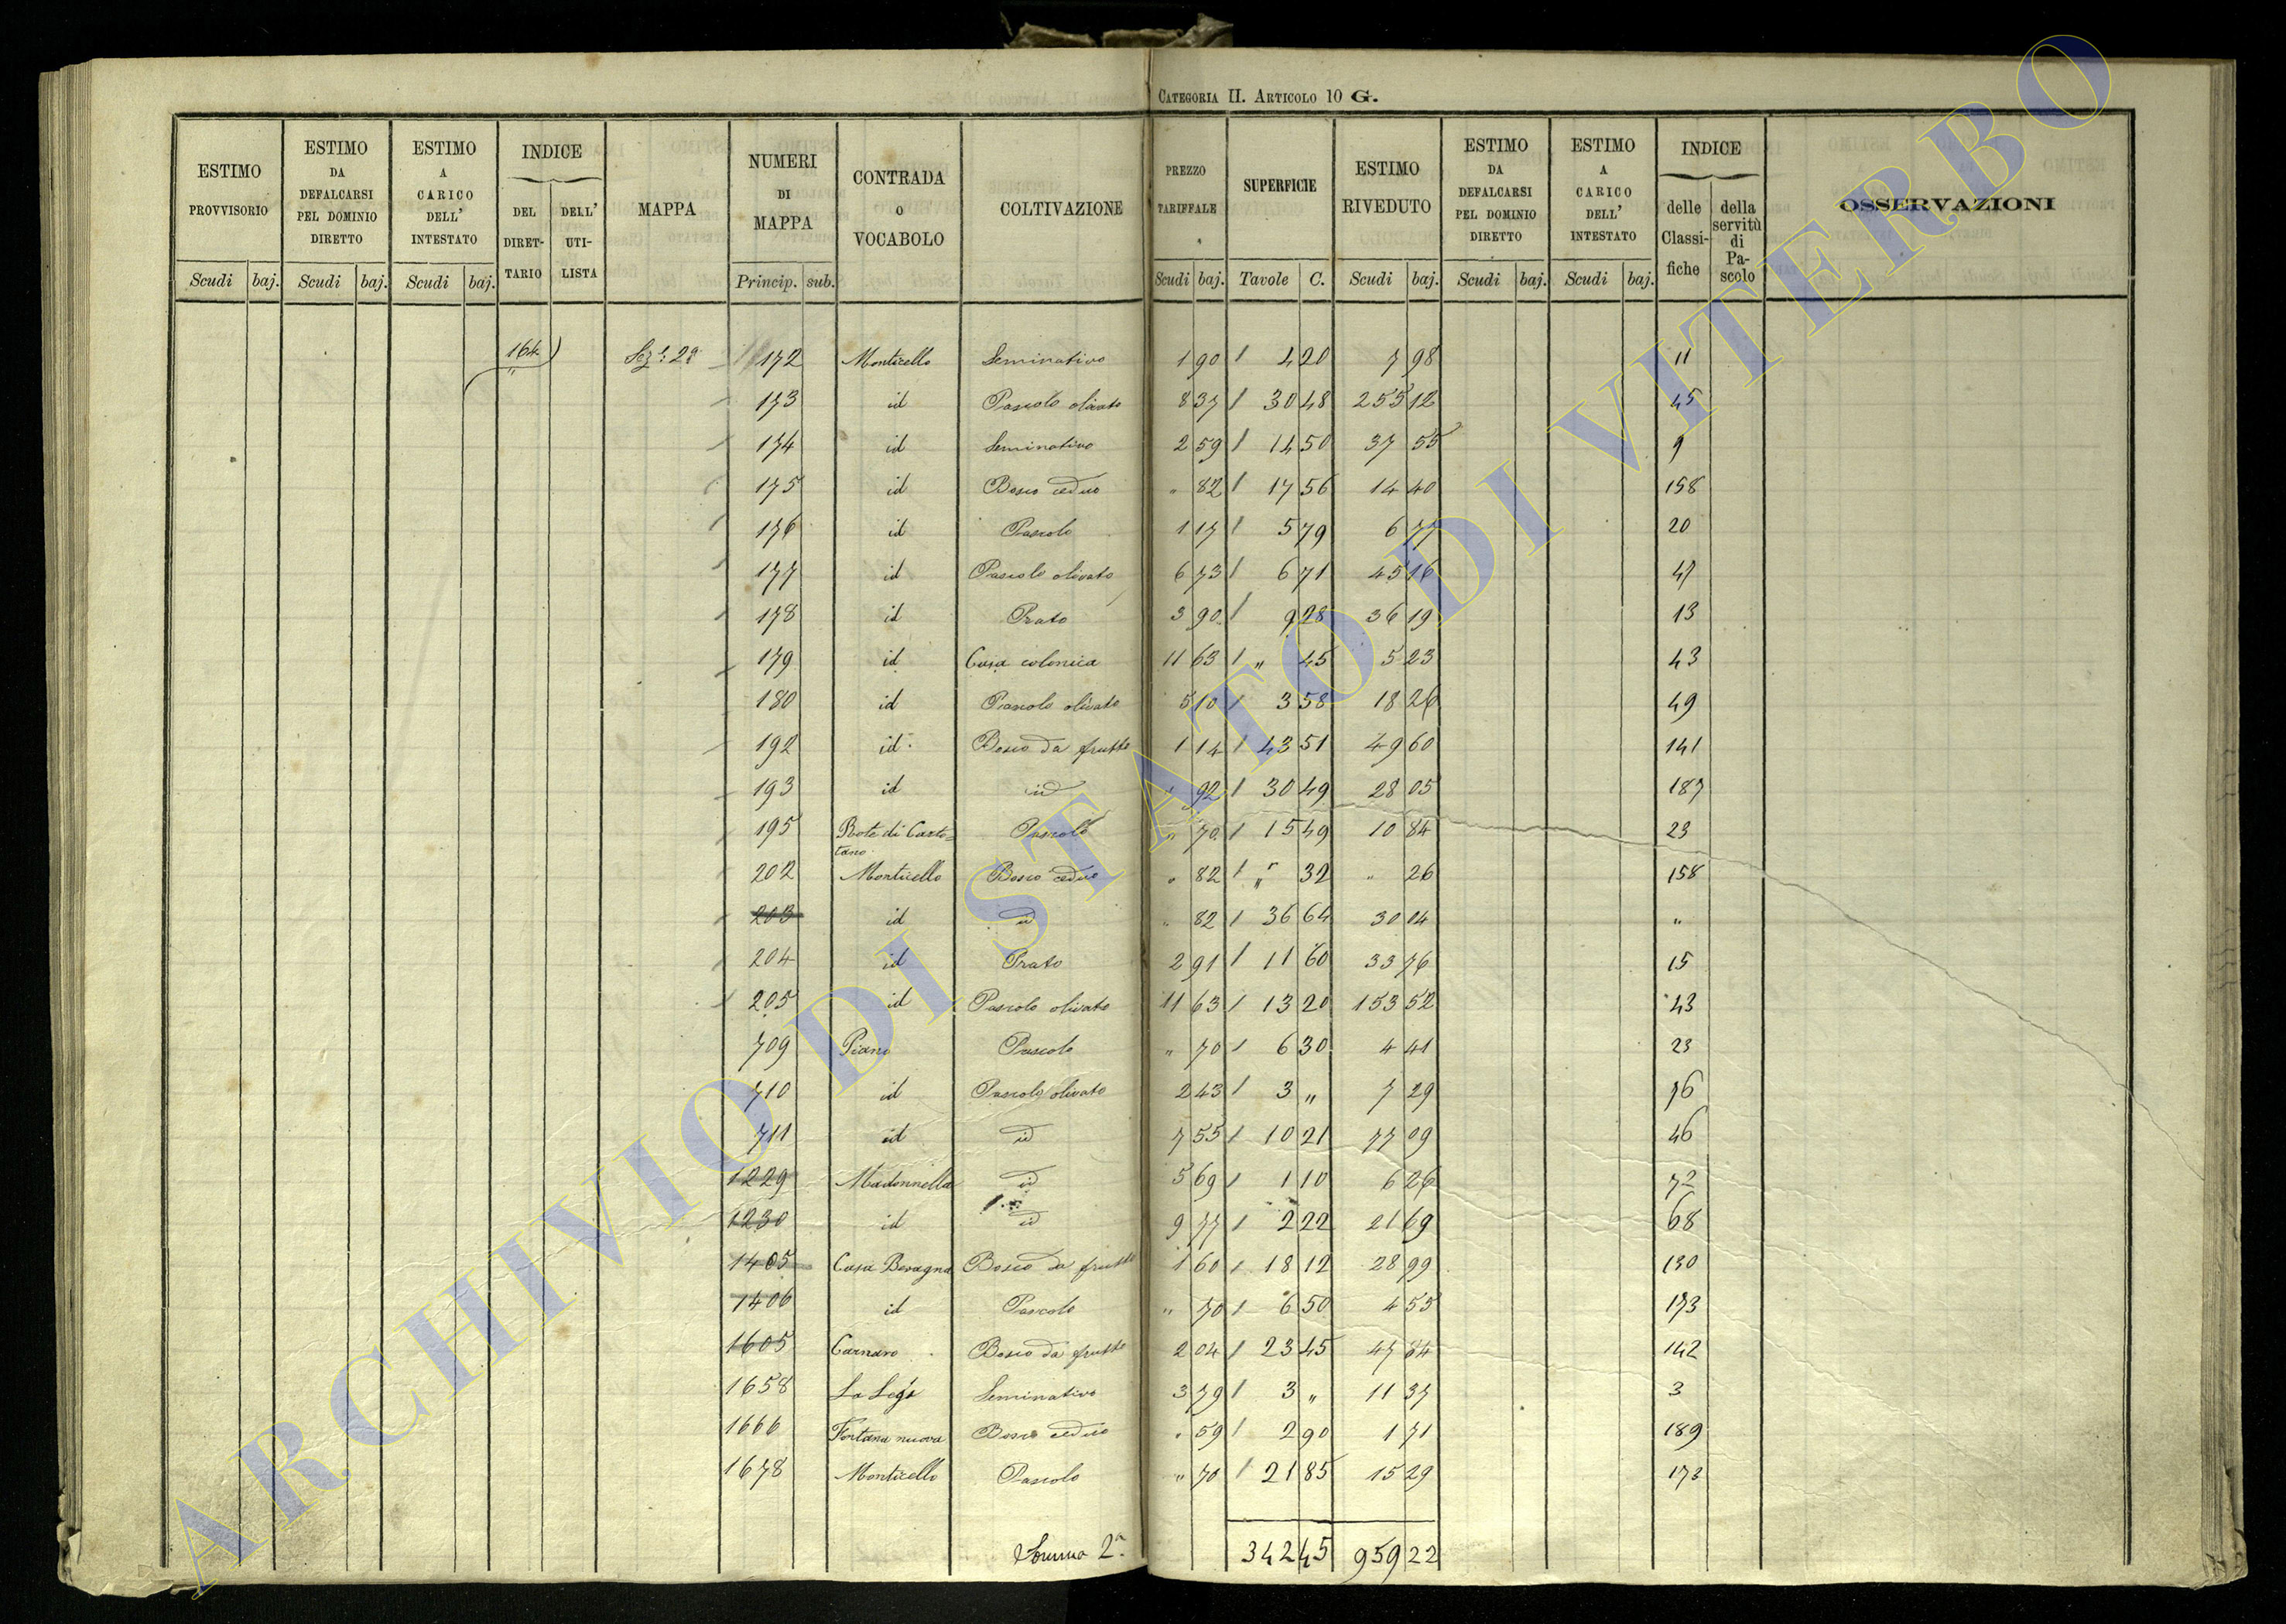 CATEGORIA II. ARTICOLO 10 G.
ESTIMO PROVVISORIO Scudi baj. ESTIMO DA DEFALCARSI PEL DOMINIO DIRETTO Scudi baj. ESTIMO A CARICO DELL' INTESTATO Scudi baj. INDICE DEL DIRET-TARIO DELL' UTI-LISTA MAPPA NUMERI DI MAPPA Princip. sub. CONTRADA O VOCABOLO COLTIVAZIONE PREZZO TARIFFALE Scudi baj. SUPERFICIE Tavole C. ESTIMO RIVEDUTO Scudi baj. ESTIMO DA DEFALCARSI PEL DOMINIO DIRETTO Scudi baj. ESTIMO A CARICO DELL' INTESTATO Scudi baj. INDICE delle Classi-fiche della servitù di Pa-scolo OSSERVAZIONI
164 Sez.e 2a 172 Monticello Seminativo 1 90 / 4 20 7 98 11
173 id Pascolo olivato 8 37 / 30 48 255 12 45
174 id Seminativo 2 59 / 14 50 37 55 9
175 id Bosco ceduo " 82 / 17 56 14 40 158
176 id Pascolo 1 17 / 5 79 6 77 20
177 id Pascolo olivato 6 73 / 6 71 45 16 47
178 id Prato 3 90 / 9 28 36 19 13
179 id Casa colonica 11 63 / " 45 5 23 43
180 id Pascolo olivato 5 10 / 3 58 18 26 49
192 id Bosco da frutto 1 14 / 43 51 49 60 141
193 id id " 92 / 30 49 28 05 187
195 Pascolo " 70 / 15 49 10 84 23
202 Monticello Bosco ceduo " 82 / " 32 " 26 158
203 id id " 82 / 36 64 30 04 "
204 id Prato 2 91 / 11 60 33 76 15
205 id Pascolo olivato 11 63 / 13 20 153 52 43
709 Piano Pascolo " 70 / 6 30 4 41 23
710 id Pascolo olivato 2 43 / 3 " 7 29 76
711 id id 7 55 / 10 21 77 09 46
1229 Madonnella id 5 69 / 1 10 6 26 72
1230 id id 9 77 / 2 22 21 69 68
1405 Casa Bevagna Bosco da frutto 1 60 / 18 12 28 99 130
1406 id Pascolo " 70 / 6 50 4 55 173
1605 Carnaro Bosco da frutto 2 04 / 23 45 47 84 142
1658 Seminativo 3 79 / 3 " 11 37 3
1666 Fontana nuova Bosco ceduo " 59 / 2 90 1 71 189
1678 Monticello Pascolo " 70 / 21 85 15 29 173
Somma 2a 342 45 959 22
ARCHIVIO DI STATO DI VITERBO